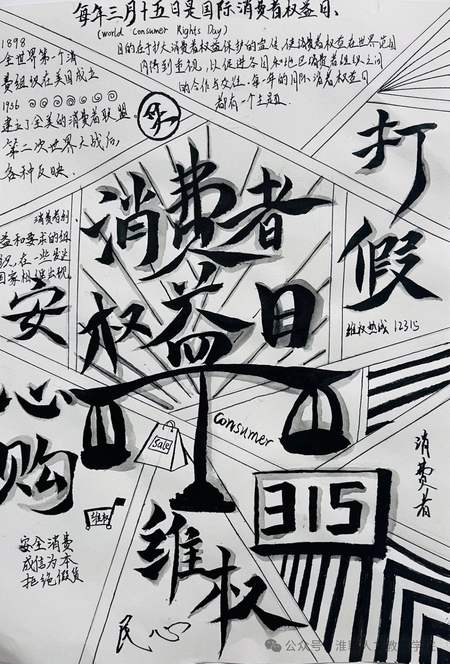 每年三月十五日是国际消费者权益日、
(World Consumer Rights Day)
目的在于扩大消费者权益保护的宣传,使消费者权益在世界范围
内得到重视,以促进各国和地区消费者组织之间
的合作与交往。每一年的国际消费者权益日
都有一个主题
1898
全世界第一个消
费组织在美国成立
1936
建立了全美的消费者联盟.
第二次世界大战后,
各种反映.
消费者利
益和要求的组
织,在一些发达
国家相继出现.
消费者
权益日
打假
维权热线 12315
安心购
Sale
Consumer
维权
315
消费者
维权
安全消费
成信为本
拒绝假货
民心
公众号